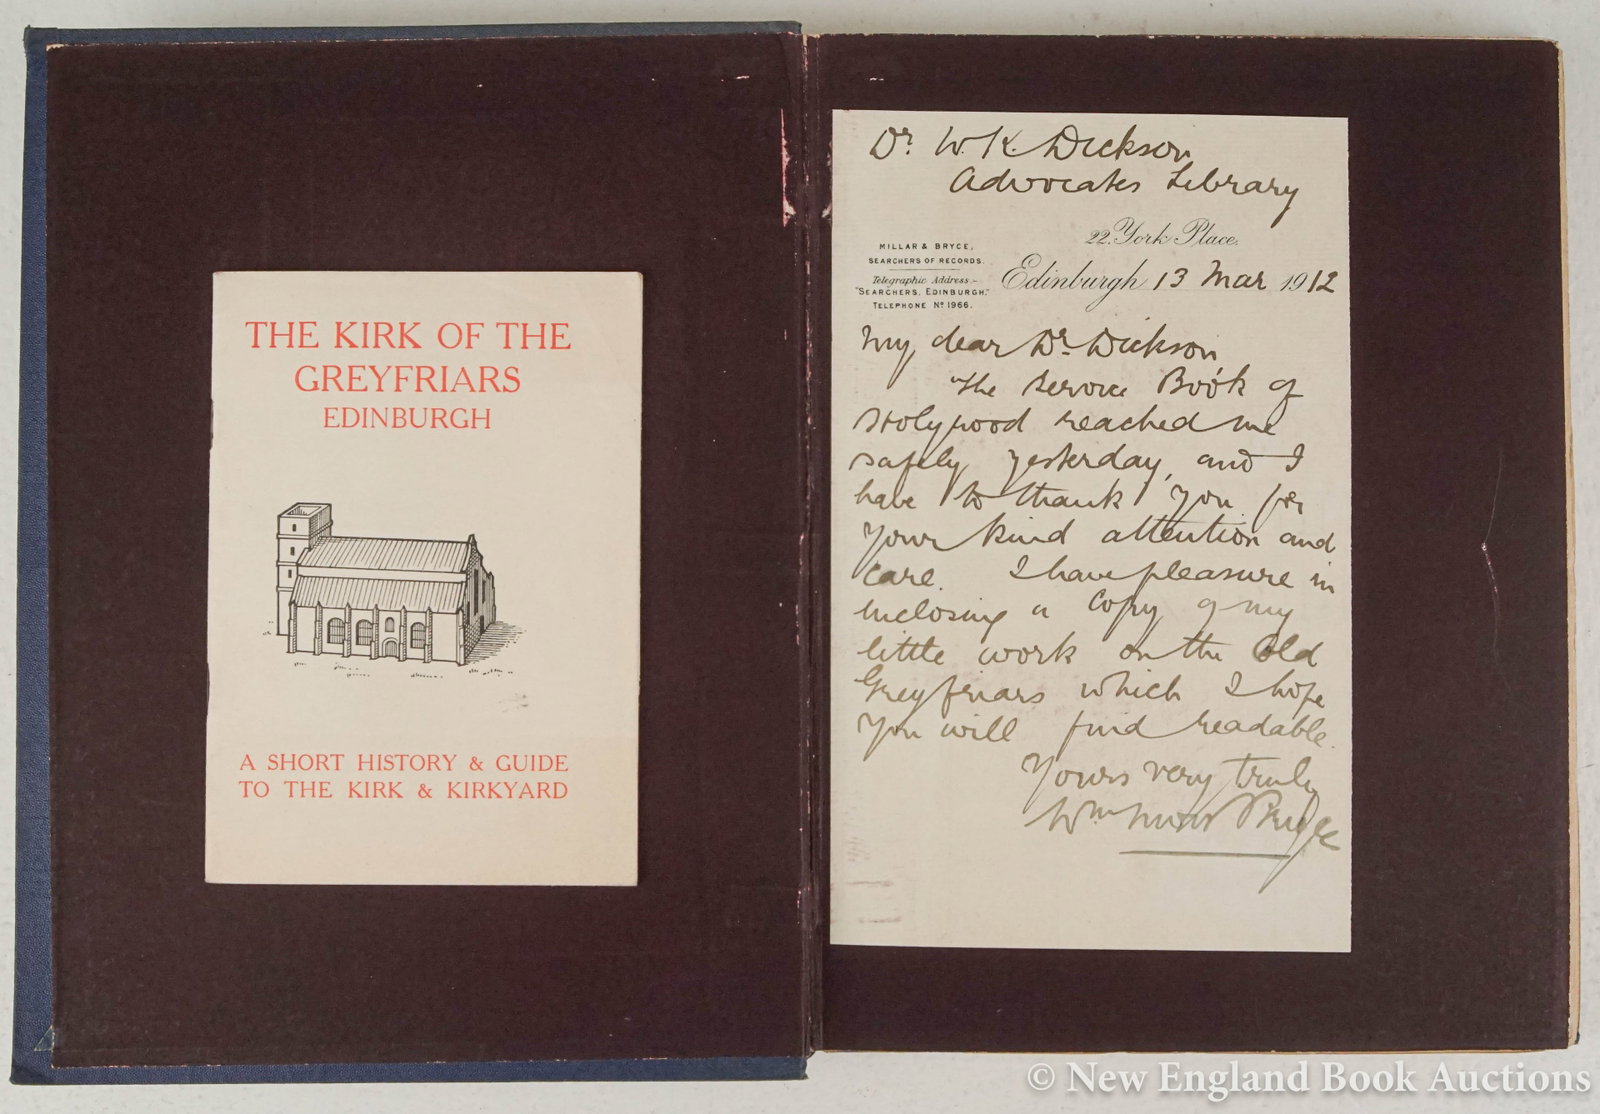 THE KIRK OF THE
GREYFRIARS
EDINBURGH
A SHORT HISTORY & GUIDE
TO THE KIRK & KIRKYARD
Dr. W. K. Dickson
Advocates Library
22. York Place.
MILLAR & BRYCE,
SEARCHERS OF RECORDS.
Telegraphic Address:-
"SEARCHERS, EDINBURGH."
TELEPHONE No 1966.
Edinburgh 13 Mar 1912
My dear Dr. Dickson
The Service Book of
Holyrood reached me
safely yesterday, and I
have to thank you for
your kind attention and
care. I have pleasure in
inclosing a copy of my
little work on the Old
Greyfriars which I hope
you will find readable.
Yours very truly
Wm Moir Bryce
© New England Book Auctions